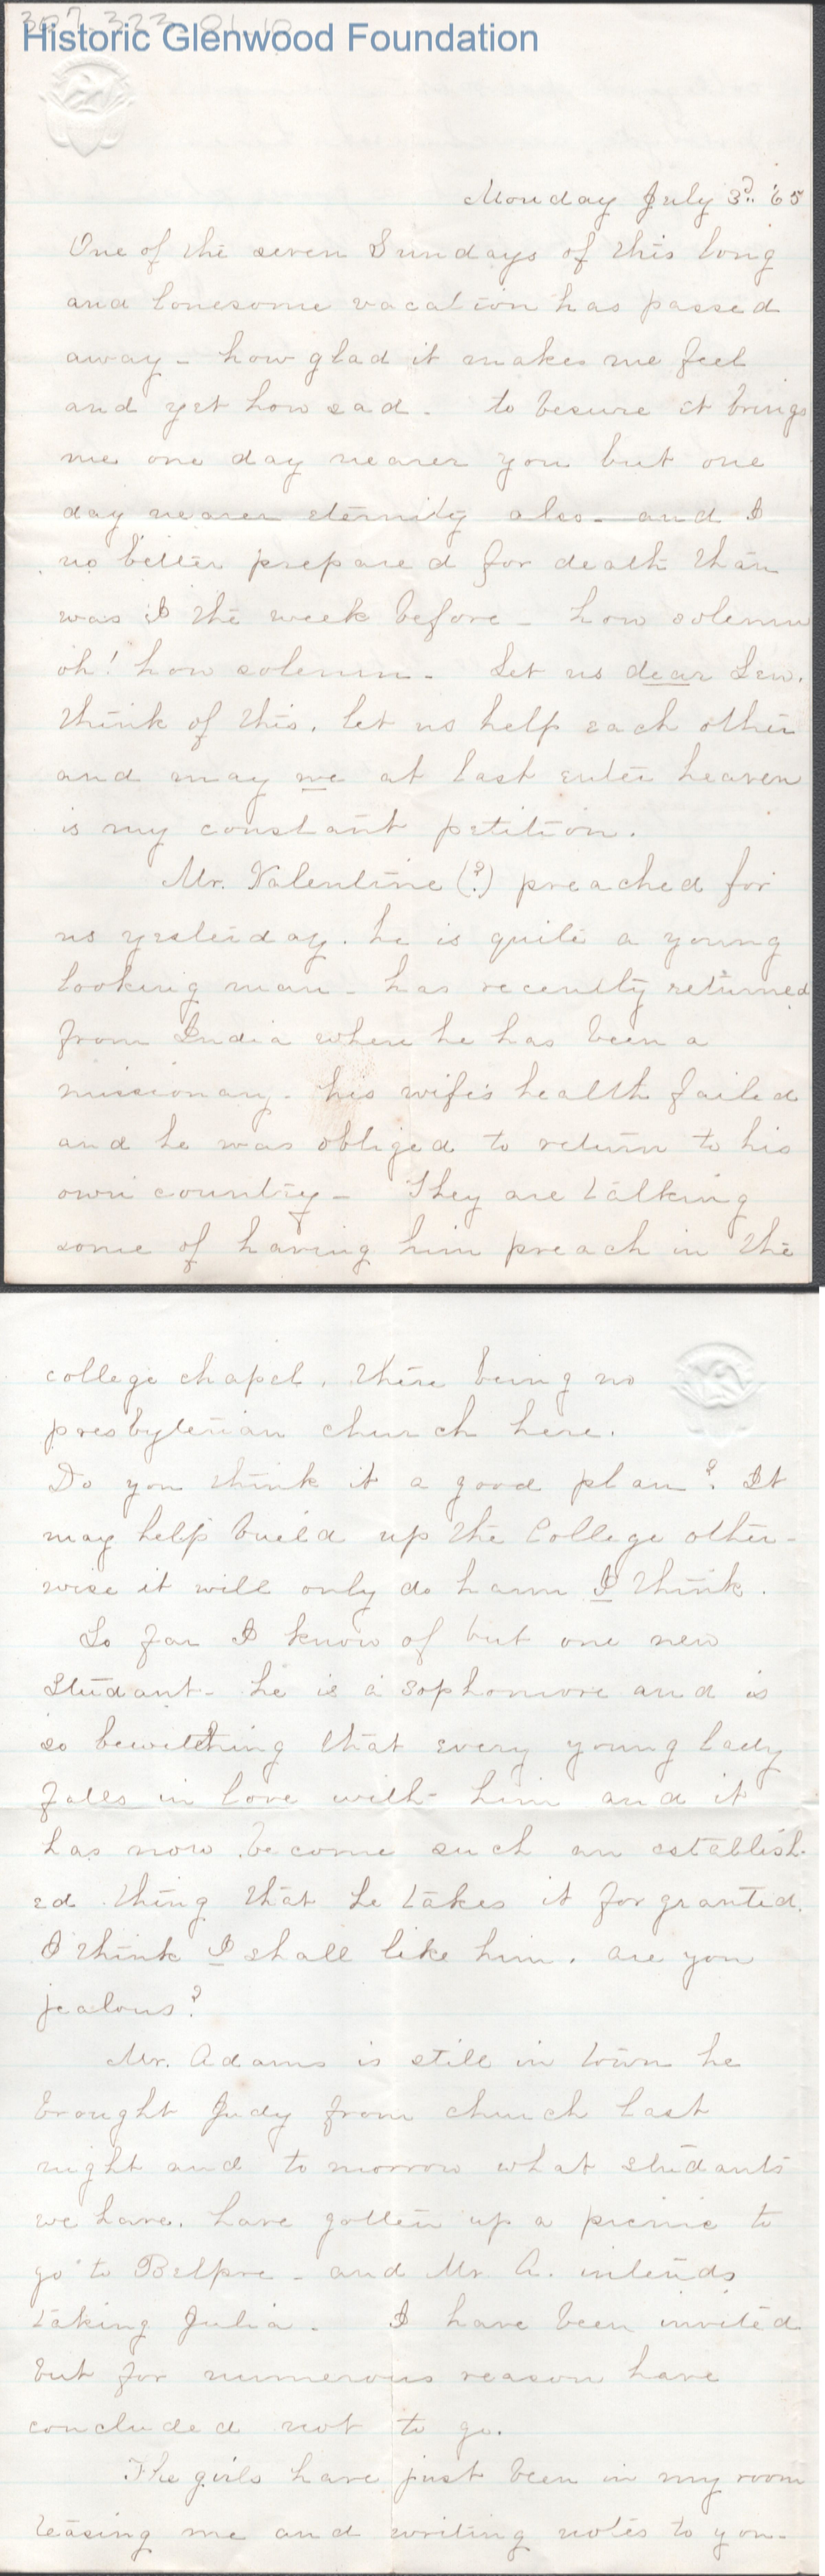 307.323.01.10
Historic Glenwood Foundation
Monday July 3d. '65
One of the seven Sundays of this long
and lonesome vacation has passed
away - how glad it makes me feel
and yet how sad. to besure it brings
me one day nearer you but one
day nearer eternity also - and I
no better prepared for death than
was I the week before - how solemn
oh! how solemn. Let us dear Lew.
think of this. let us help each other
and may we at last enter heaven
is my constant petition.
Mr. Valentine (?) preached for
us yesterday. he is quite a young
looking man - has recently returned
from India where he has been a
missionary - his wife's health failed
and he was obliged to return to his
own country - They are talking
some of having him preach in the
college chapel, there being no
presbyterian church here.
Do you think it a good plan? It
may help build up the College other-
wise it will only do harm I think.
So far I know of but one new
studant - he is a sophomore and is
so bewitching that every young lady
falls in love with him and it
has now become such an establish-
ed thing that he takes it for granted.
I think I shall like him. are you
jealous?
Mr. Adams is still in town he
brought Judy from church last
night and to morrow what studants
we have. have gotten up a picnic to
go to Belpre - and Mr A. intends
taking Julia. I have been invited
but for numerous reason have
concluded not to go.
The girls have just been in my room
teasing me and writing notes to you-